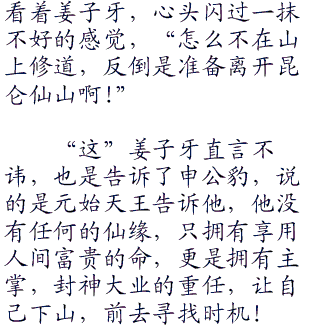 看着姜子牙，心头闪过一抹
不好的感觉，“怎么不在山
上修道，反倒是准备离开昆
仑仙山啊！”
“这”姜子牙直言不
讳，也是告诉了申公豹，说
的是元始天王告诉他，他没
有任何的仙缘，只拥有享用
人间富贵的命，更是拥有主
掌，封神大业的重任，让自
己下山，前去寻找时机！